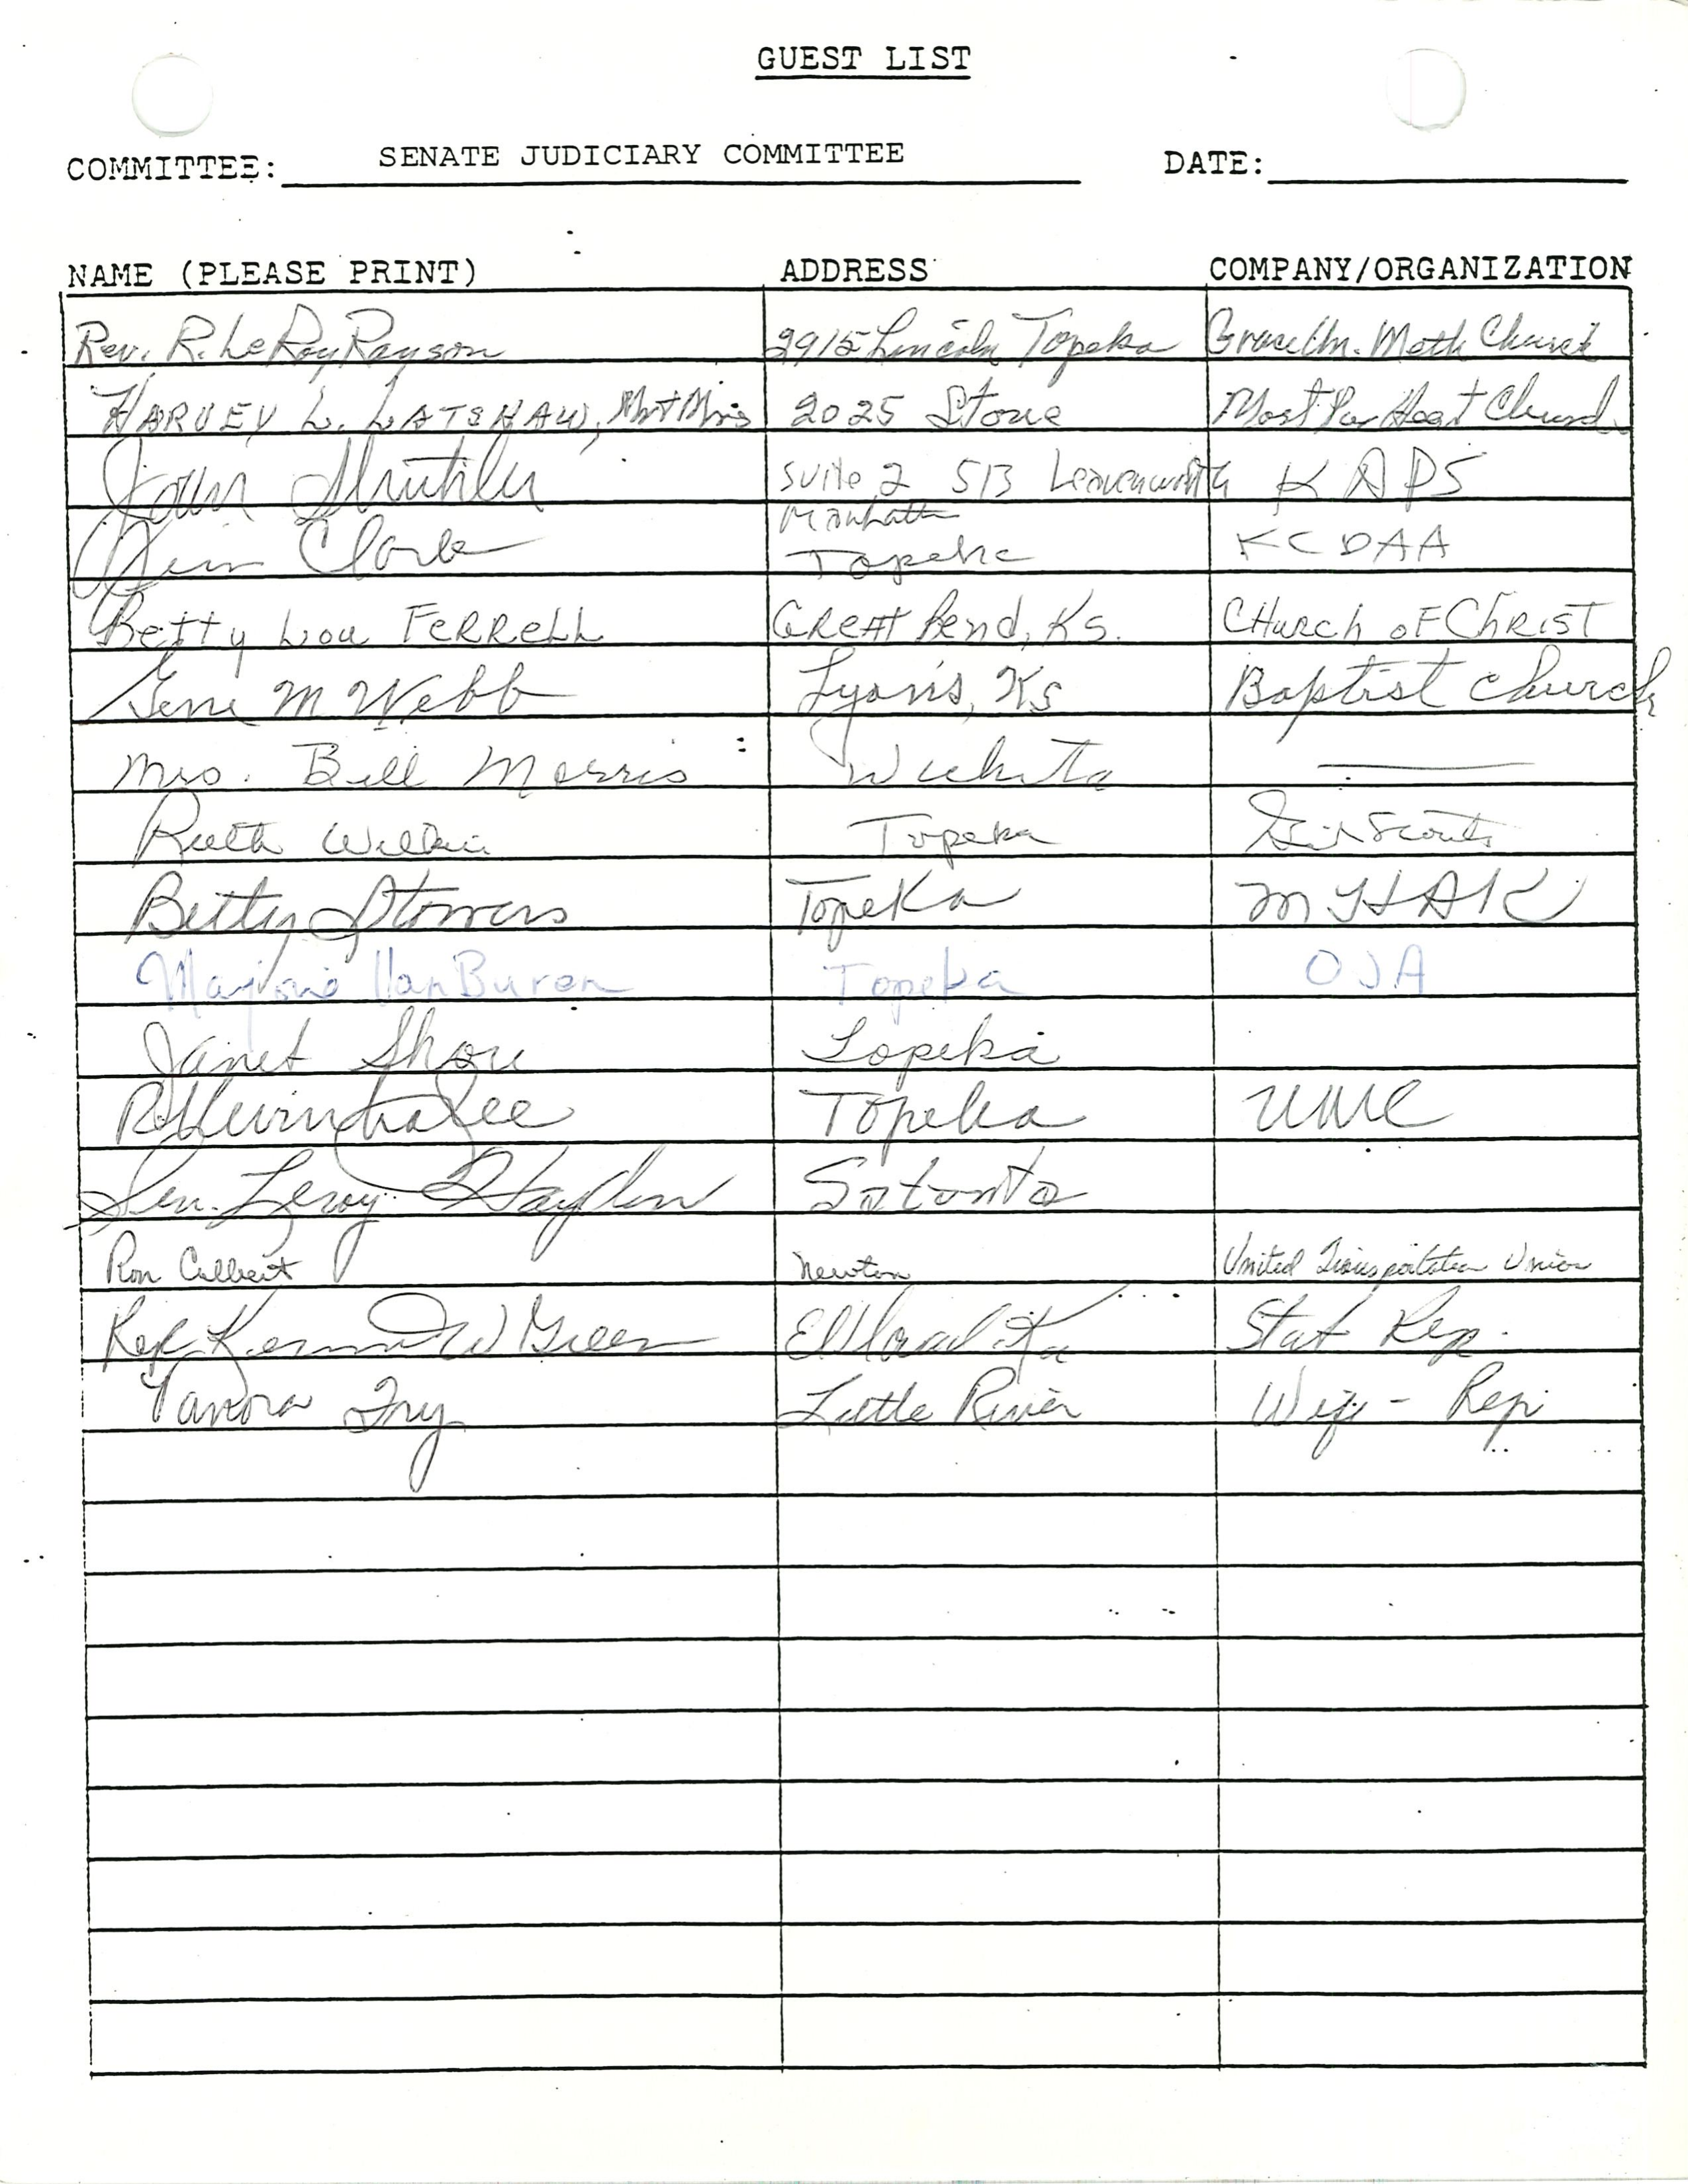 GUEST LIST
COMMITTEE: SENATE JUDICIARY COMMITTEE DATE:
NAME (PLEASE PRINT) ADDRESS COMPANY/ORGANIZATION
Rev. R. LeRoy Rayson 2915 Lincoln Topeka Grace Un. Meth Church
HARVEY L. LATSHAW, Mr + Mrs 2025 Stone Most Pur Heart Church
Joan Suite 2 513 Leavenworth KAPS
Manhattan
Jim Clark Topeka KCDAA
Betty Lou FERRELL GREAT Bend, Ks. CHurch oF ChRIST
Gene M Webb Lyons, Ks Baptist Church
Mrs. Bill Morris Wichita ——
Ruth Wilkin Topeka Girl Scouts
Betty Stowers TopeKa MHAK
Marjorie Van Buren Topeka OJA
Janet Topeka
Topeka UMC
Sen. Leroy Hayden Satanta
Ron Culbert Newton United Transportation Union
Rep. W Green El Ks Stat Rep.
Fry Little River Wife - Rep